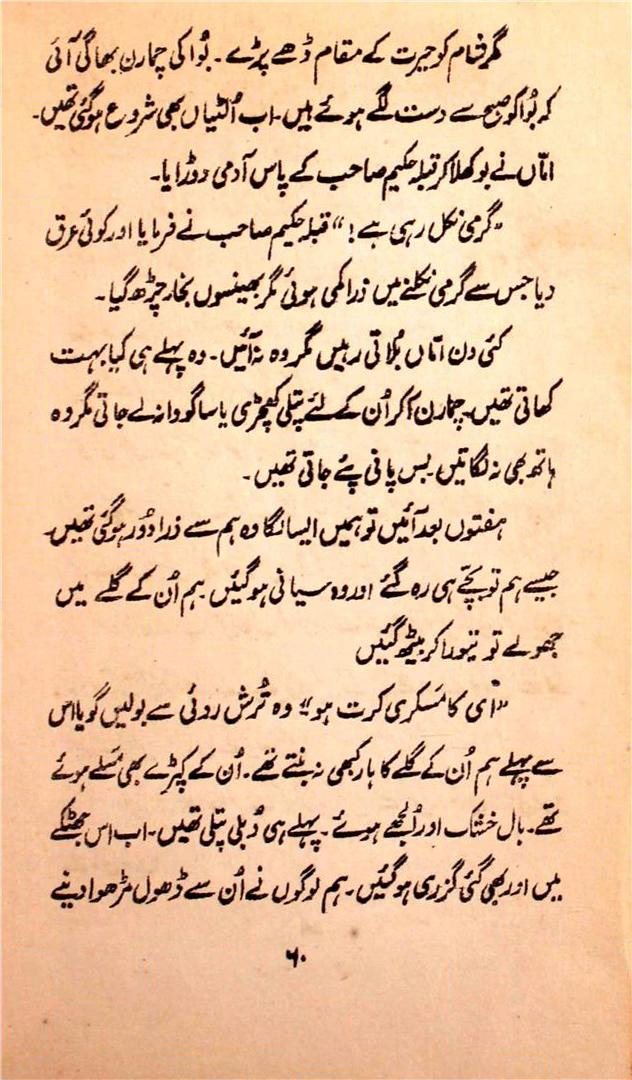 مگر شام کو حیرت کے مقام ڈھے پڑے۔ بُوا کی چمارن بھاگی آئی
کہ بُوا کو صبح سے دست لگے ہوئے ہیں۔ اب اُلٹیاں بھی شروع ہوگئی تھیں۔
امّاں نے بوکھلا کر قبلہ حکیم صاحب کے پاس آدمی دوڑایا۔
"گرمی نکل رہی ہے!" قبلہ حکیم صاحب نے فرمایا اور کوئی عرق
دیا جس سے گرمی نکلنے میں ذرا کمی ہوئی مگر بھینسوں بخار چڑھ گیا۔
کئی دن امّاں بُلاتی رہیں مگر وہ نہ آئیں۔ وہ پہلے ہی کیا بہت
کھاتی تھیں۔ چمارن آکر اُن کے لئے پتلی کھچڑی یا ساگودانہ لے جاتی مگر وہ
ہاتھ بھی نہ لگاتیں۔ بس پانی پئے جاتی تھیں۔
ہفتوں بعد آئیں تو ہمیں ایسا لگا وہ ہم سے ذرا دُور ہوگئی تھیں۔
جیسے ہم تو بچّے ہی رہ گئے اور وہ سیانی ہوگئیں۔ ہم اُن کے گلے میں
جھولے تو تیورا کر بیٹھ گئیں
"ای کا مَسکری کرت ہو" وہ تُرش روئی سے بولیں گویا اس
سے پہلے ہم اُن کے گلے کا ہار کبھی نہ بنتے تھے۔ اُن کے کپڑے بھی مَسلے ہوئے
تھے۔ بال خشک اور اُلجھے ہوئے۔ پہلے ہی دُبلی پتلی تھیں۔ اب اس جھٹکے
میں اور بھی گئی گزری ہوگئیں۔ ہم لوگوں نے اُن سے ڈھول مڑھوا دینے
۶۰